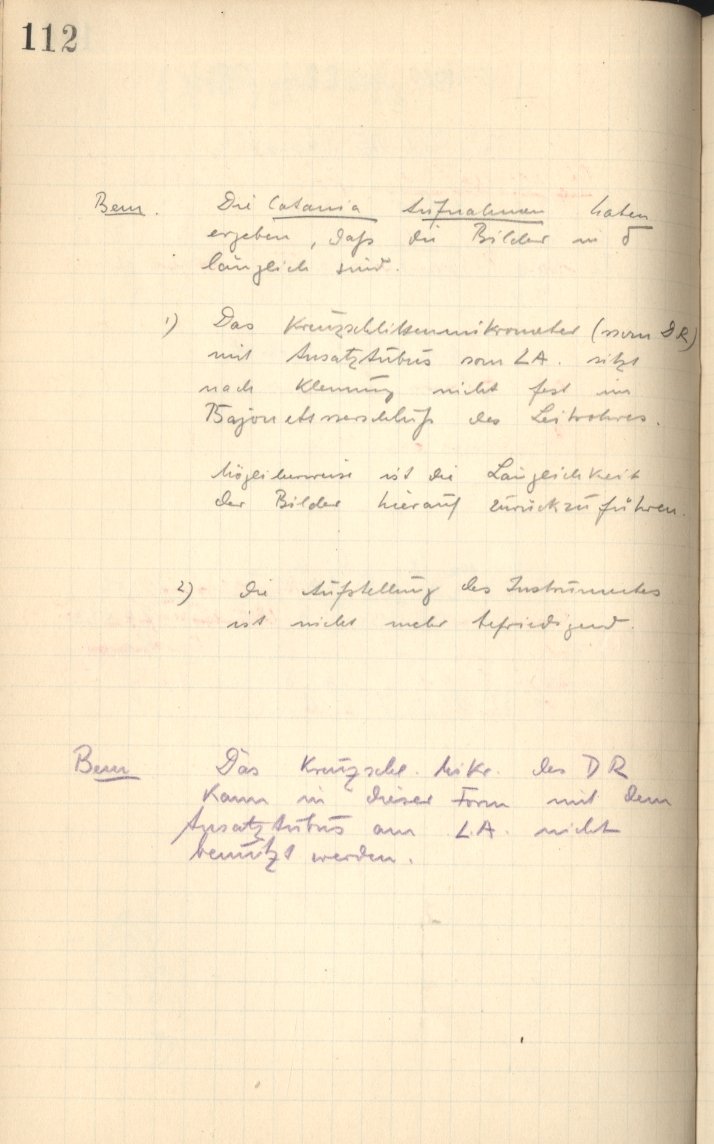 112
Bem. Die Catania Aufnahmen haben
ergeben, daß die Bilder in δ
länglich sind.
1) Das Kreuzschlittenmikrometer (vom DR)
mit Ansatztubus vom LA. sitzt
nach Klemmung nicht fest im
Bajonettverschluß des Leitrohres.
Möglicherweise ist die Länglichkeit
der Bilder hierauf zurückzuführen.
2) Die Aufstellung des Instrumentes
ist nicht mehr befriedigend.
Bem Das Kreuzschl. Mikr. des DR
kann in dieser Form mit dem
Ansatztubus am LA. nicht
benützt werden.